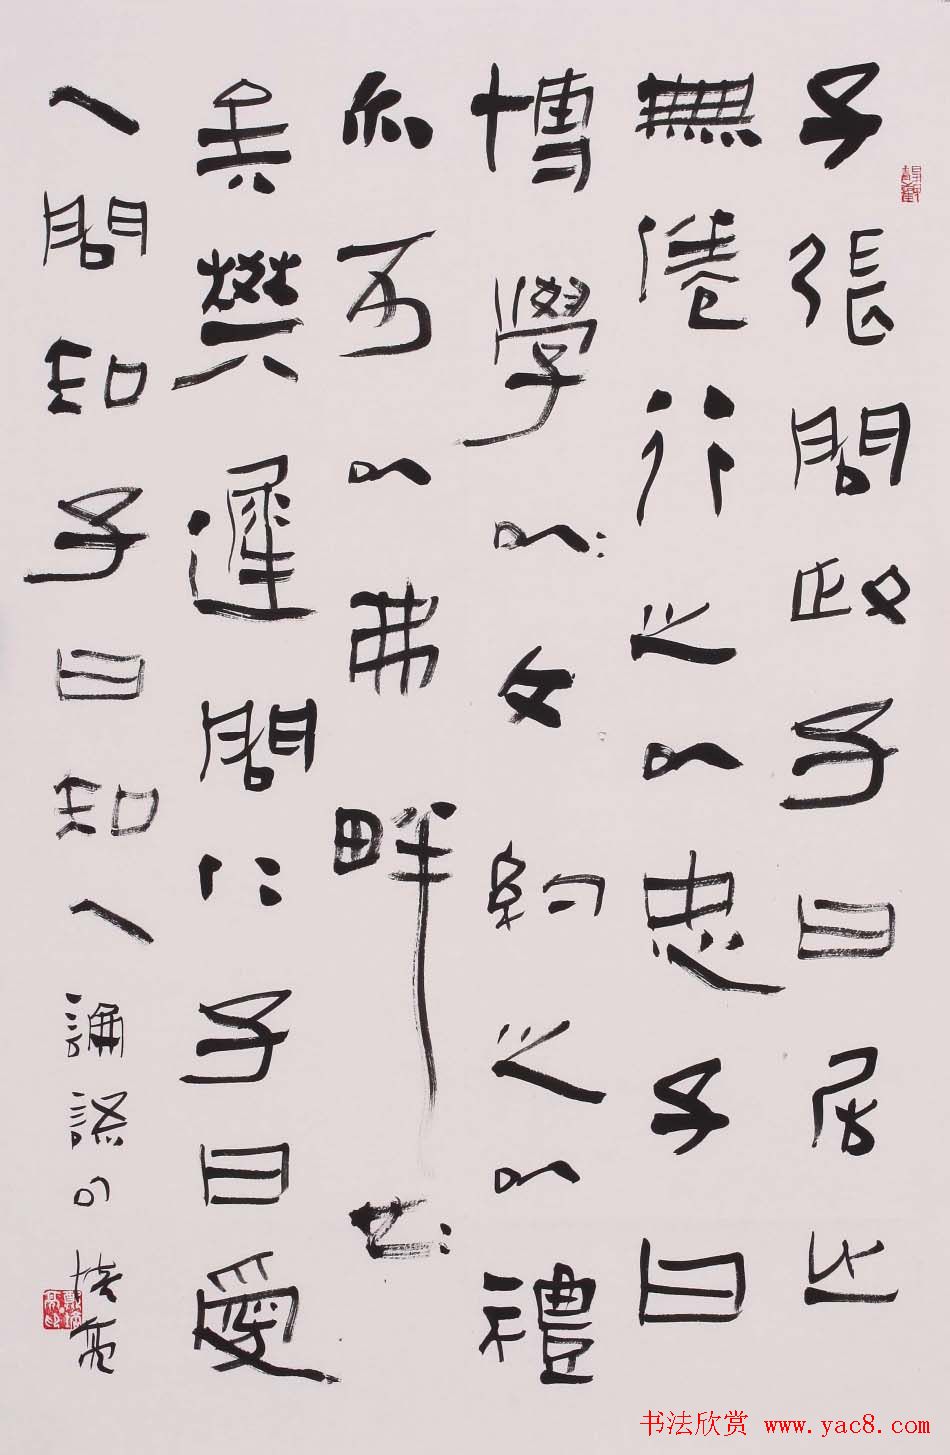 子張問政子曰居之
無倦行之以忠子曰
博學以文約之以禮
亦可以弗畔
矣樊遲問仁子曰愛
人問知子曰知人論語句培亮
书法欣赏 www.yac8.com